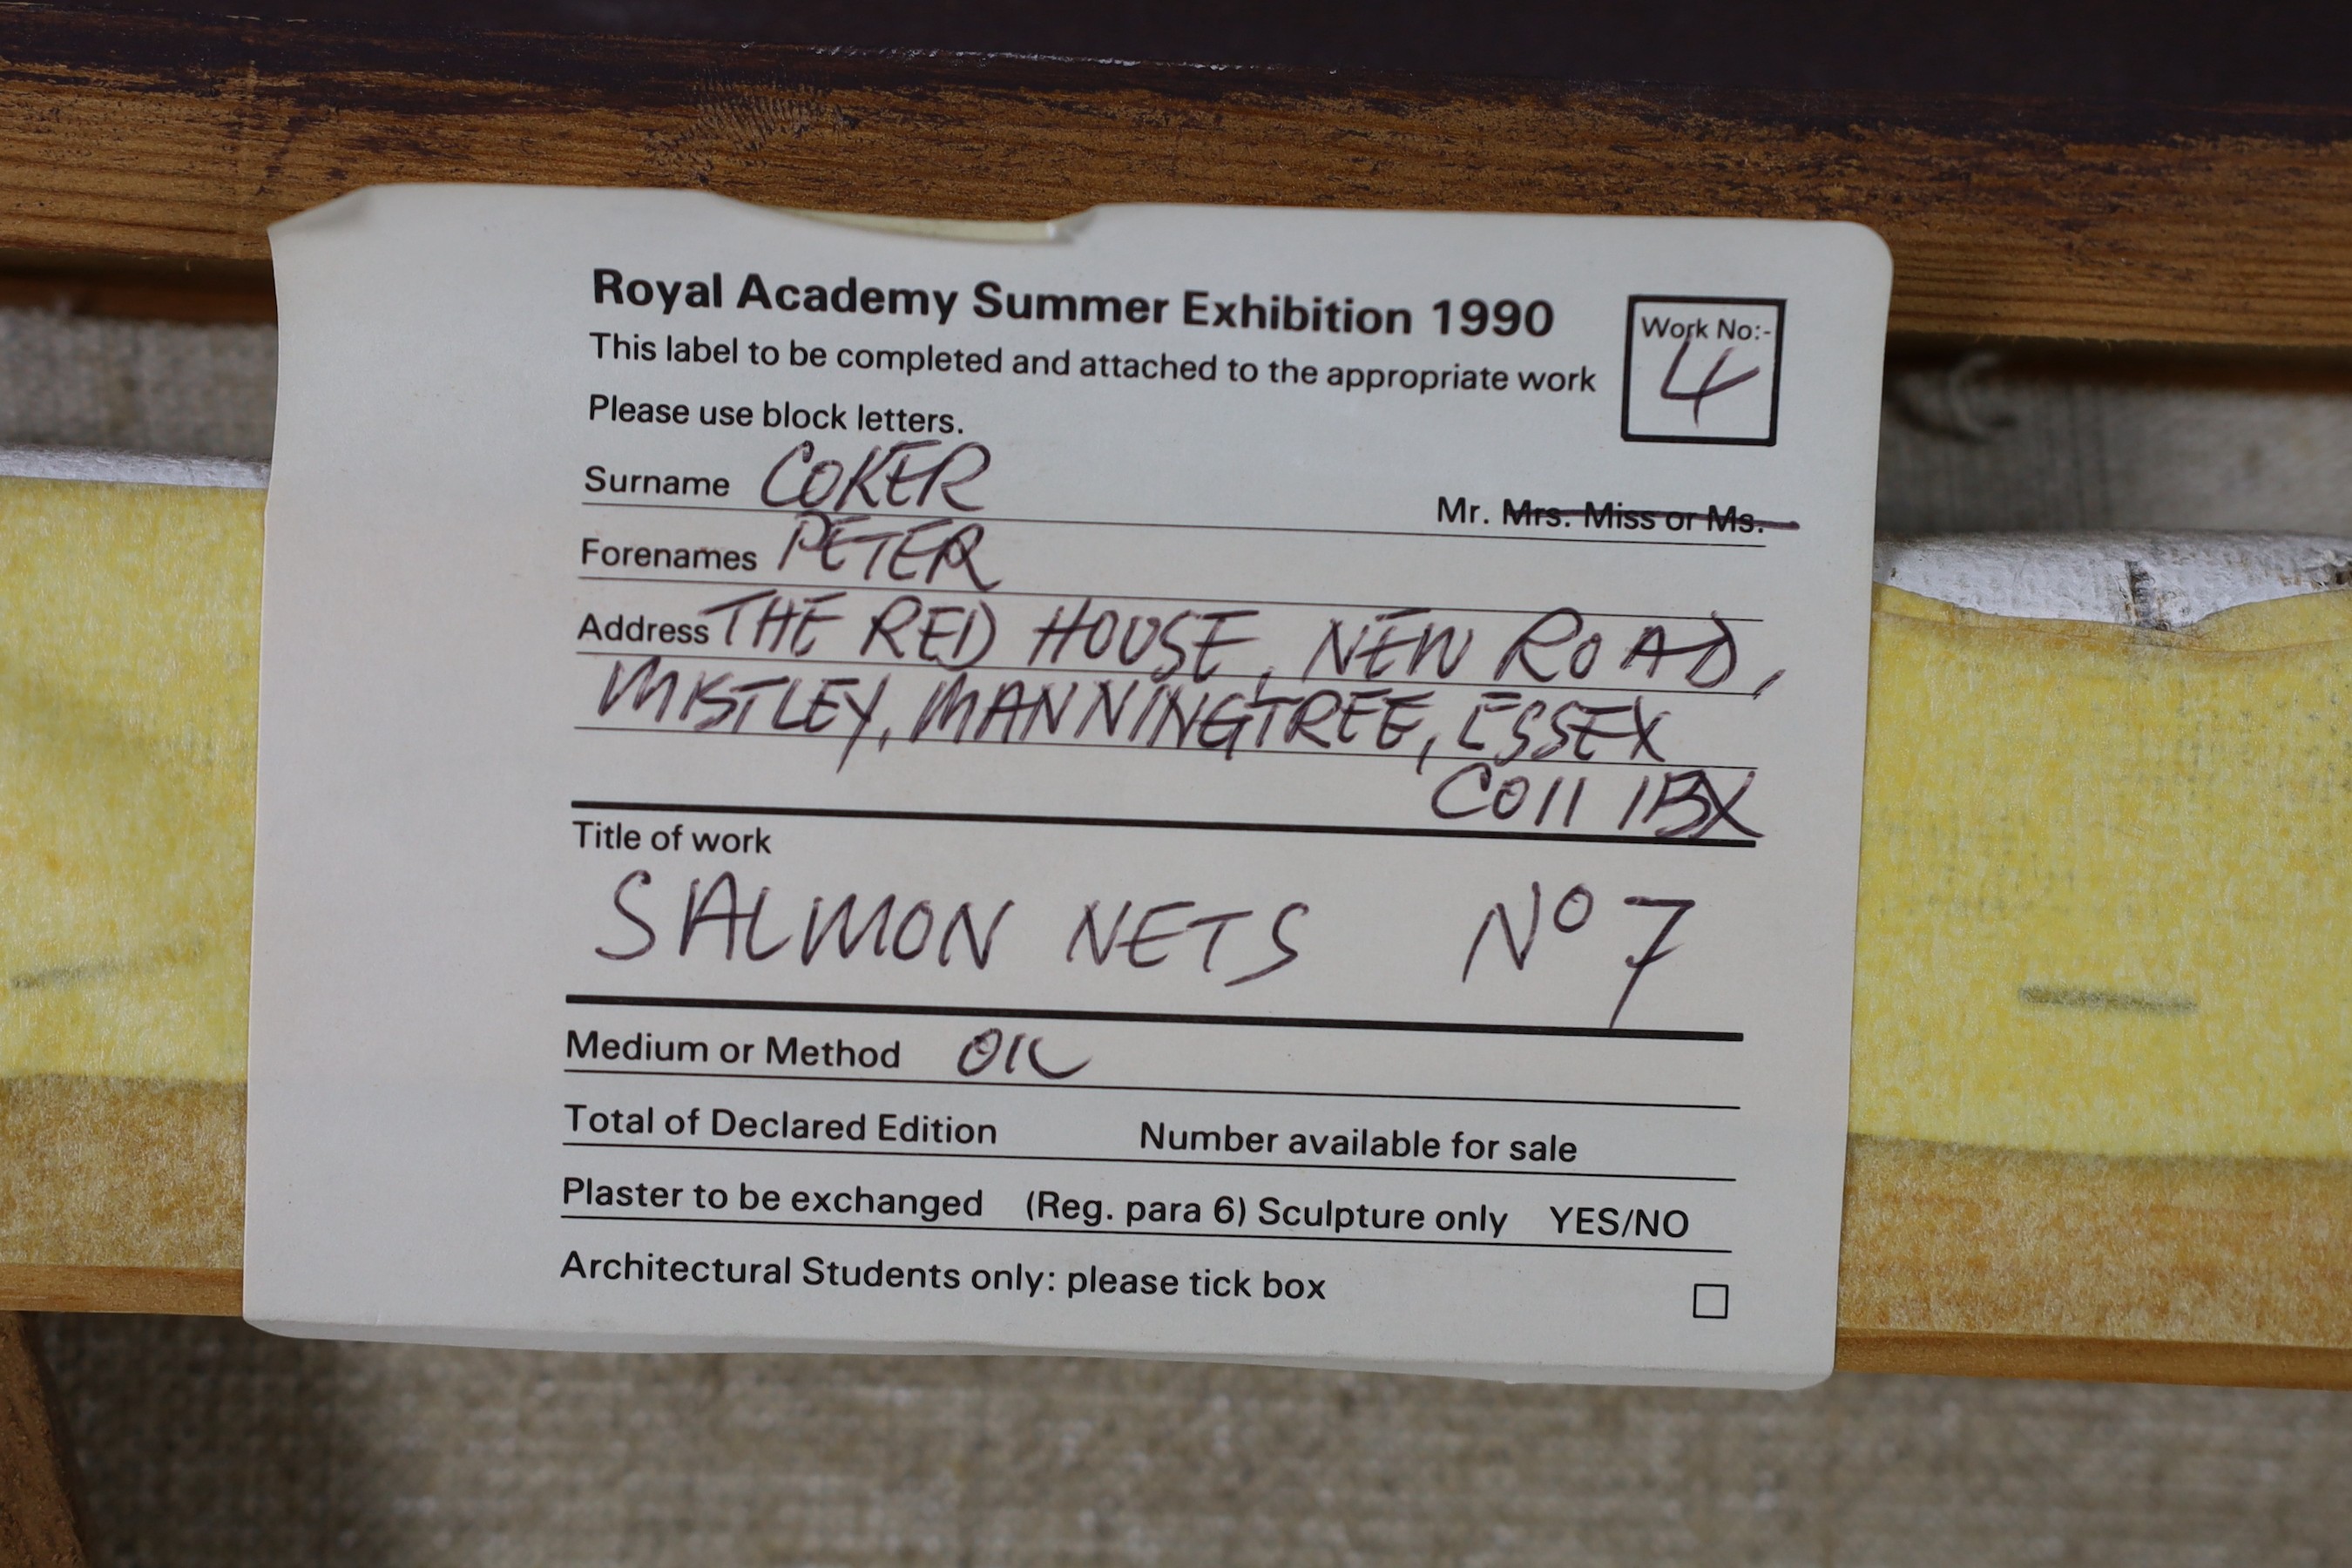 Royal Academy Summer Exhibition 1990
Work No:-
4
This label to be completed and attached to the appropriate work
Please use block letters.
Surname COKER
Mr. Mrs. Miss or Ms.
Forenames PETER
Address THE RED HOUSE, NEW ROAD,
MISTLEY, MANNINGTREE, ESSEX
CO11 1BX
Title of work
SALMON NETS Nº 7
Medium or Method OIL
Total of Declared Edition Number available for sale
Plaster to be exchanged (Reg. para 6) Sculpture only YES/NO
Architectural Students only: please tick box